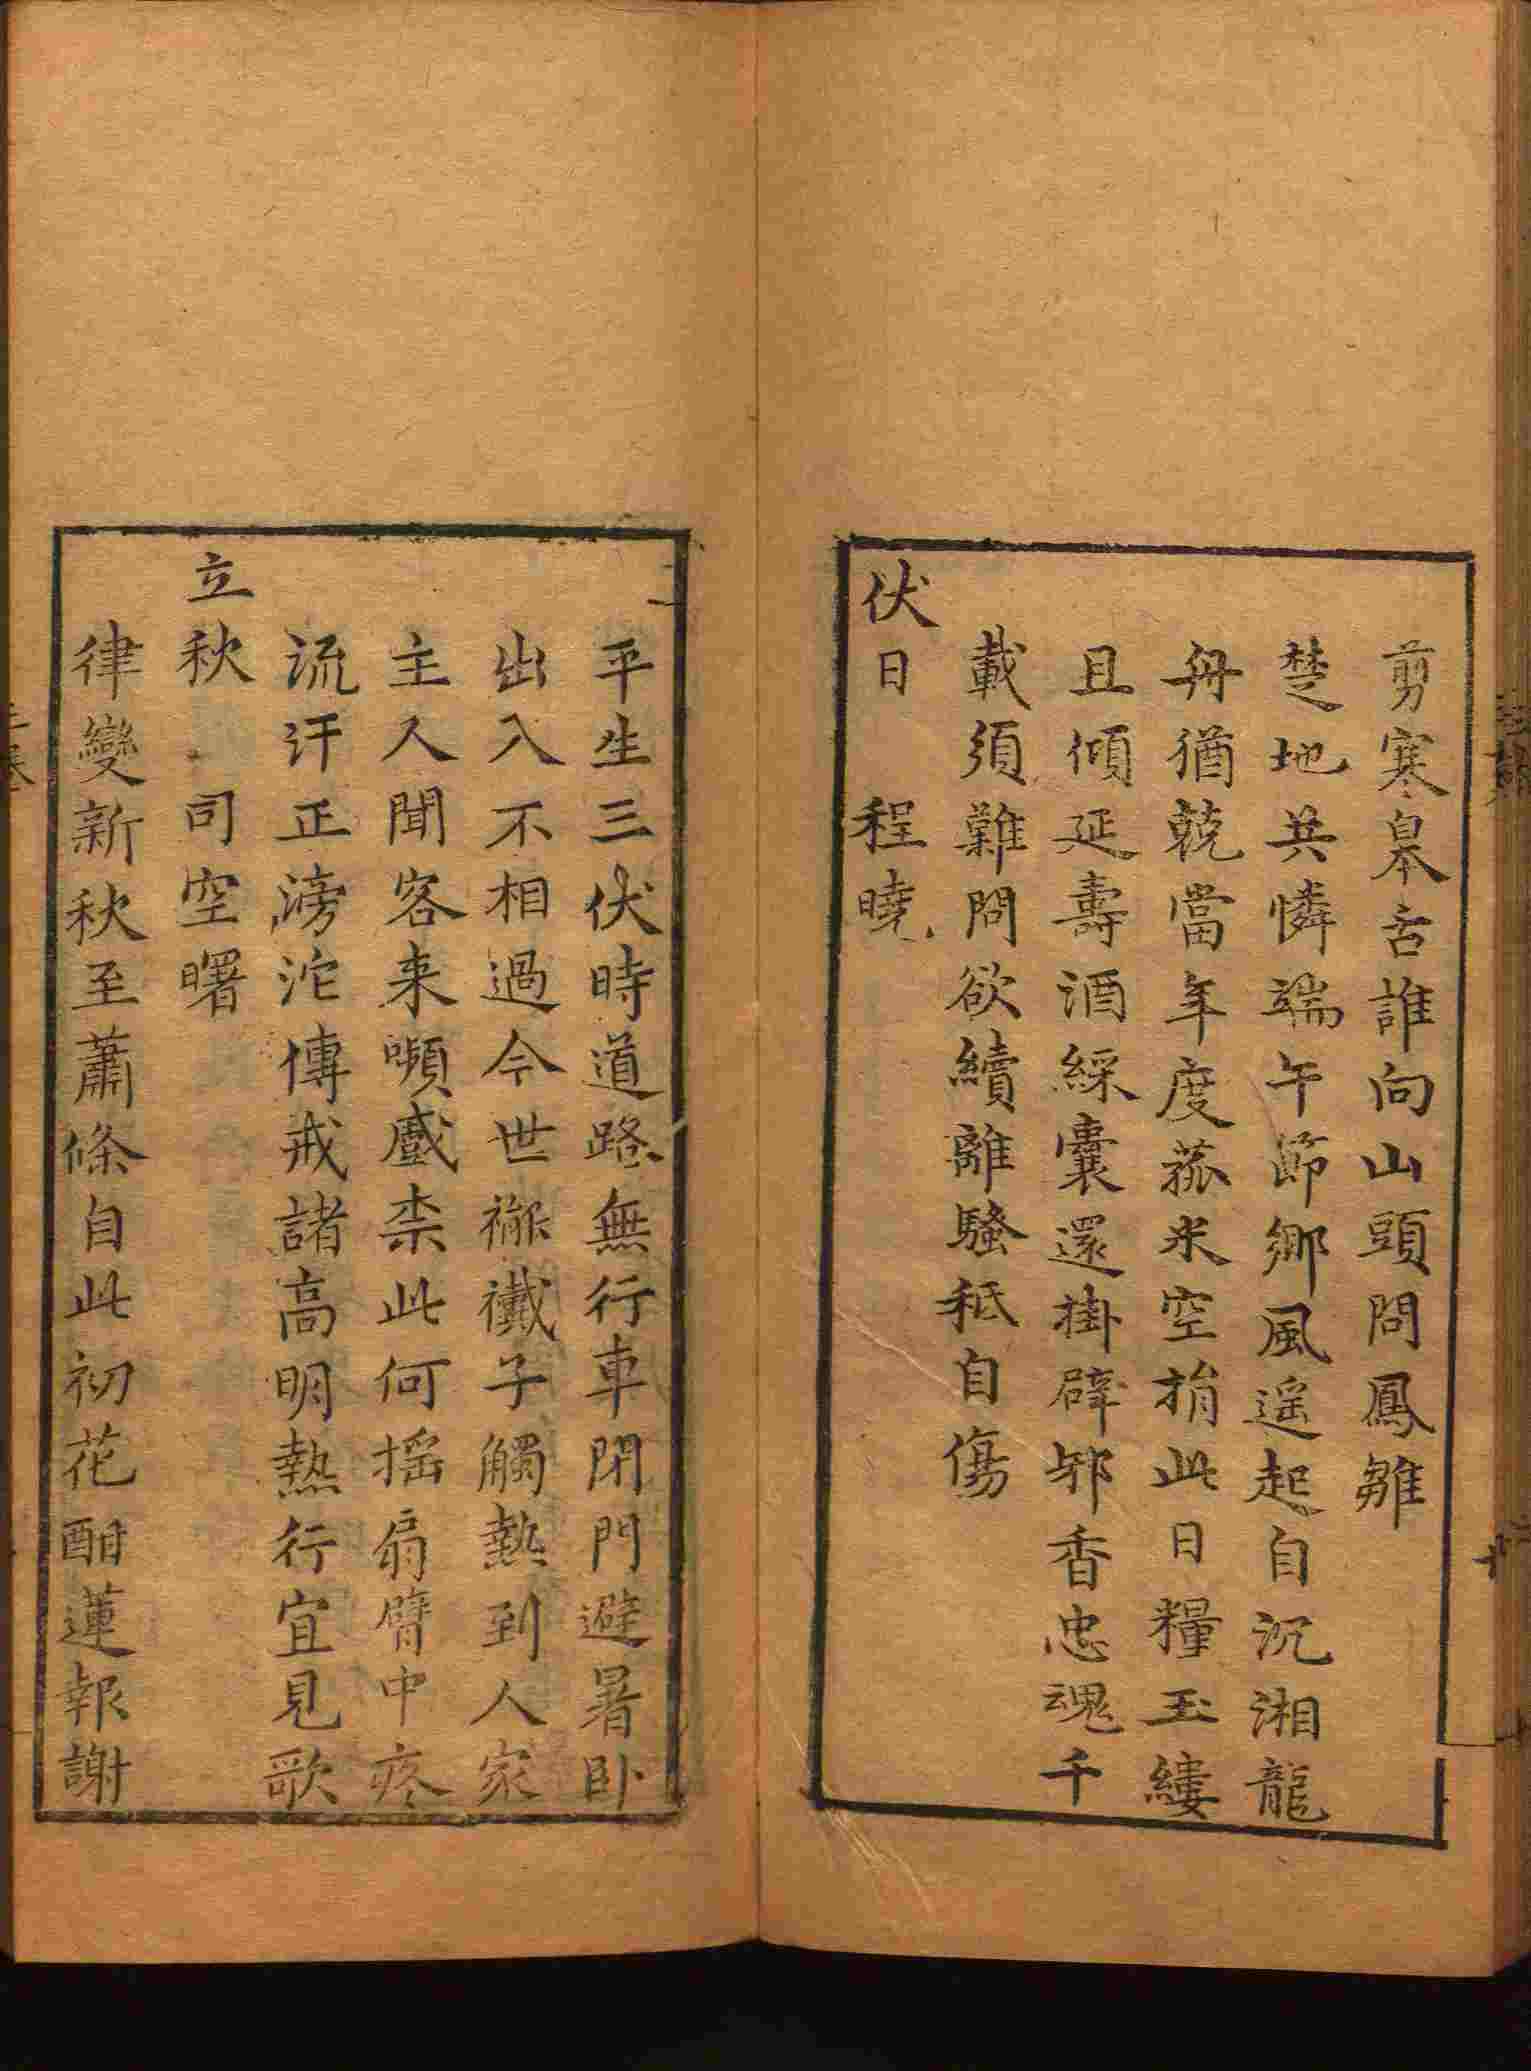 剪寒皋舌誰向山頭問鳳雛
楚地共憐端午節鄉風遥起自沉湘龍
舟猶兢當年度菰米空捐此日糧玉縷
且傾延壽酒綵囊還掛辟邪香忠魂千
載須難問欲續離騷秪自傷
伏日 程曉
平生三伏時道路無行車閉門避暑卧
出入不相過今世褦襶子觸熱到人家
主人聞客来嚬蹙柰此何揺扇臂中疼
流汗正滂沱傳戒諸高明熱行宜見歌
立秋 司空曙
律變新秋至蕭條自此初花酣蓮報謝